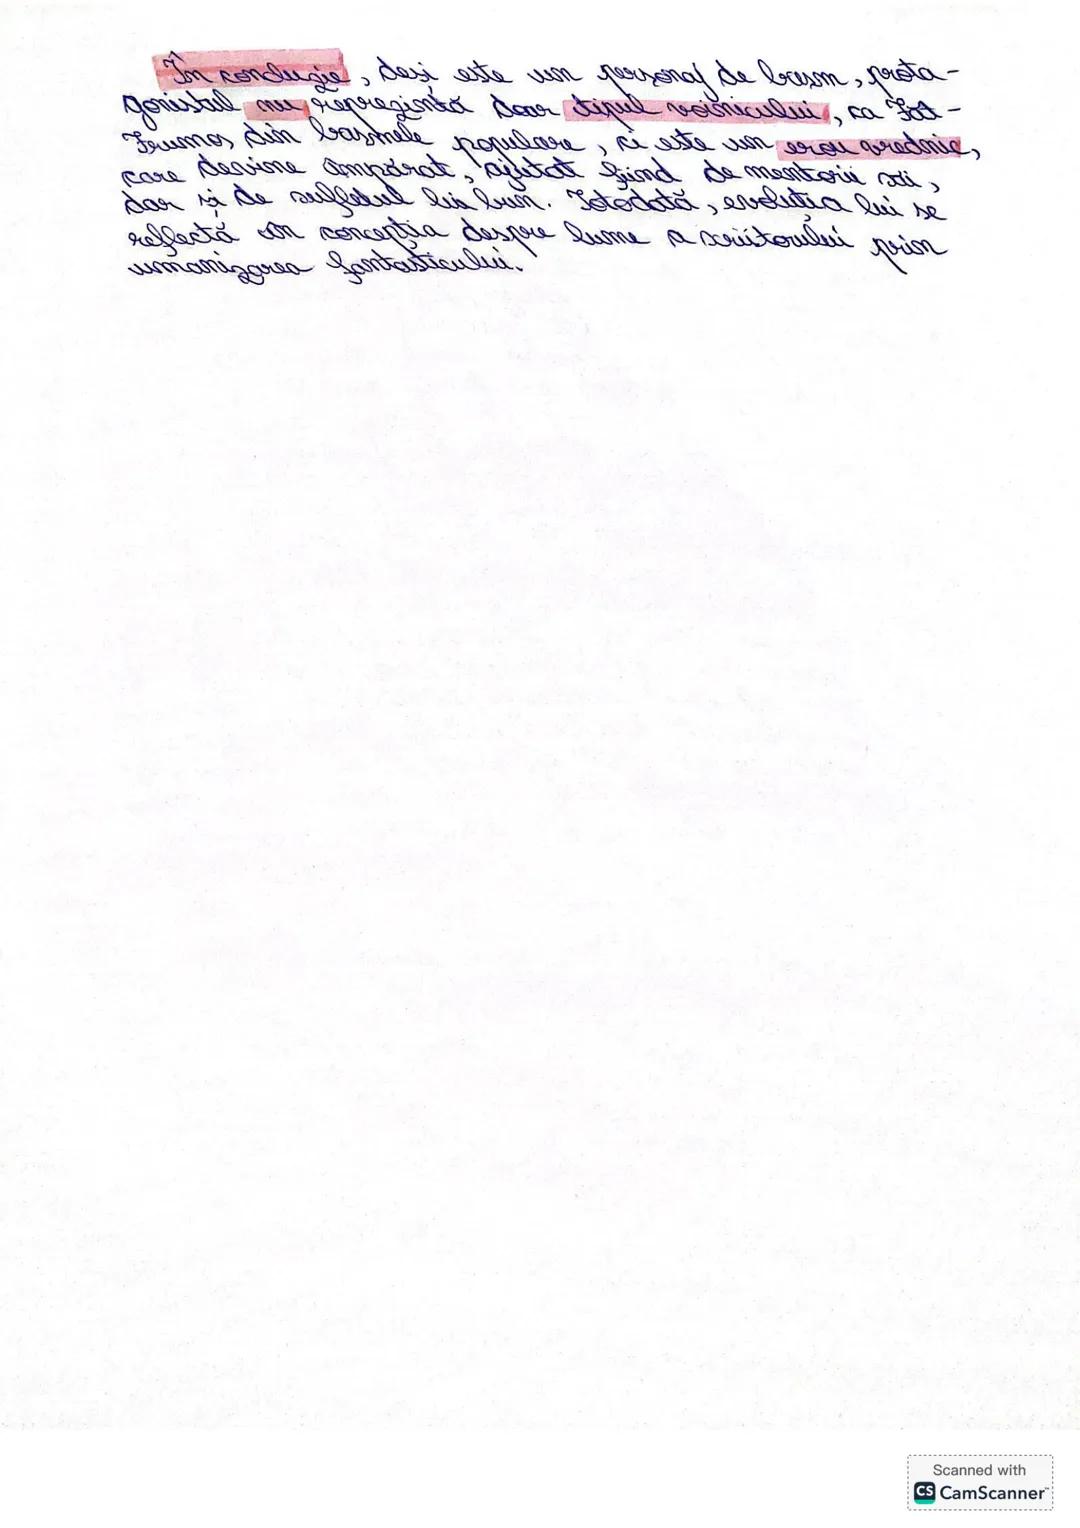 În concluzie, deși este un personaj de basm, prota-
gonistul nu reprezintă doar tipul voinicului, ca Făt-
Frumos din basmele populare, ci este un erou vrednic,
care devine împărat, ajutat fiind de mentorii săi,
dar și de sufletul lui bun. Totodată, evoluția lui se
reflectă în concepția despre lume a scriitorului prin
umanizarea fantasticului.
Scanned with
CS CamScanner™